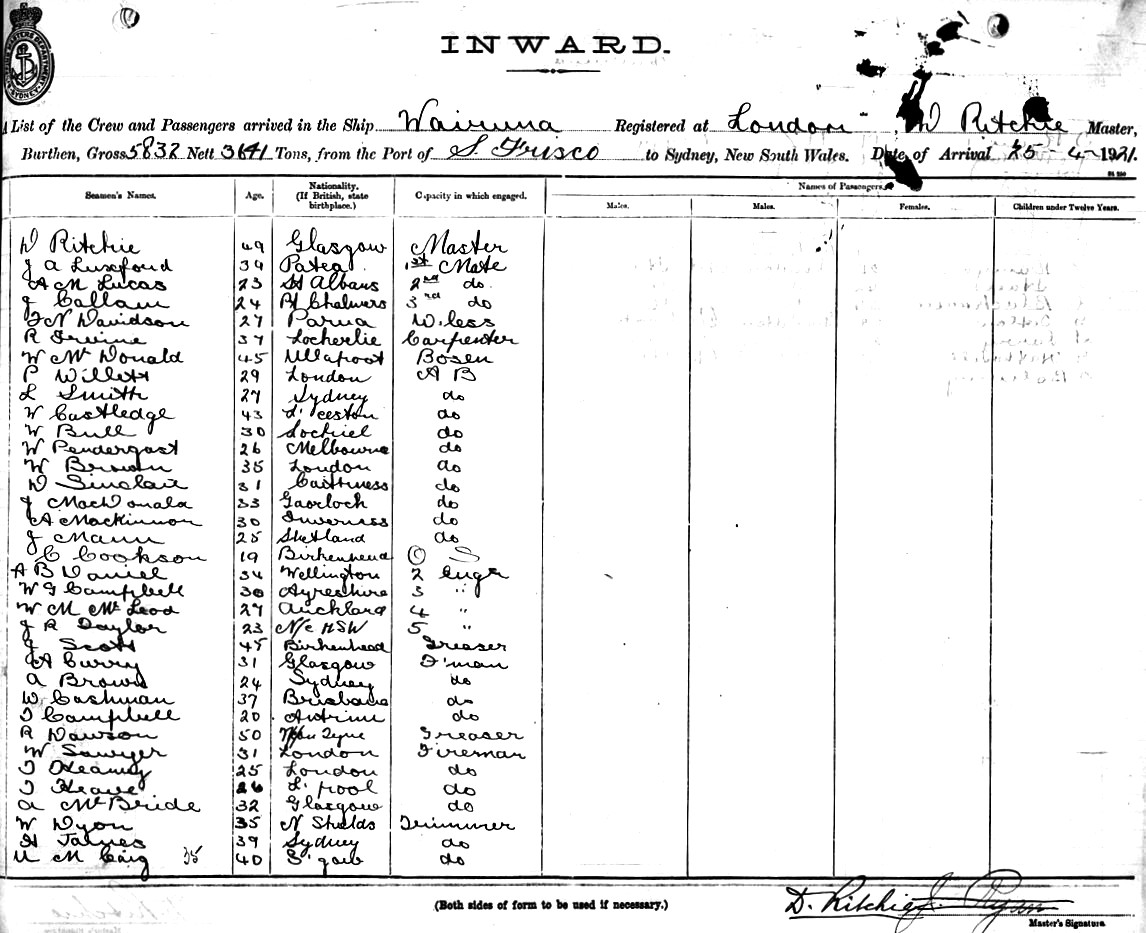 INWARD.
A List of the Crew and Passengers arrived in the Ship Wairuna Registered at London D Ritchie Master,
Burthen, Gross 5832 Nett 3641 Tons, from the Port of S. Frisco to Sydney, New South Wales. Date of Arrival 25-4-1921.
Names of Passengers.
Seamen's Names. Age. Nationality. (If British, state birthplace.) Capacity in which engaged. Males. Males. Females. Children under Twelve Years.
D Ritchie 49 Glasgow Master
J A 39 Patea 1st Mate
A M Lucas 23 St Albans 2nd do.
J Callam 24 Pt Chalmers 3rd do
N Davidson 27 Parua W.less
R Irvine 37 Locherlie Carpenter
W McDonald 45 Ullapool Bosen
P Willett 29 London A B
L Smith 27 Sydney do
W Castledge 43 L'ceston do
W Bull 30 Lochiel do
W Pendergast 26 Melbourne do
W Brown 35 London do
D Sinclair 31 Caithness do
J MacDonald 33 Gaorloch do
A Mackinnon 30 Inverness do
J Mann 25 Shetland do
C Cookson 19 Birkenhead O S
A B Daniel 34 Wellington 2 Engr
W G Campbell 30 Ayreshire 3 "
W M McLeod 27 Auckland 4 "
J R Taylor 23 N/c NSW 5 "
J Scott 45 Birkenhead Greaser
A Curry 31 Glasgow F'man
A Brown 24 Sydney do
W Cashman 37 Brisbane do
T Campbell 20 Antrim do
R Dawson 50 Tyne Greaser
W Sawyer 31 London Fireman
T Heaney 25 London do
T 26 L'pool do
A McBride 32 Glasgow do
W Dyon 35 N Shields Trimmer
H James 39 Sydney do
M McCaig 35 40 G'gow do
(Both sides of form to be used if necessary.)
D. Ritchie
Master's Signature.